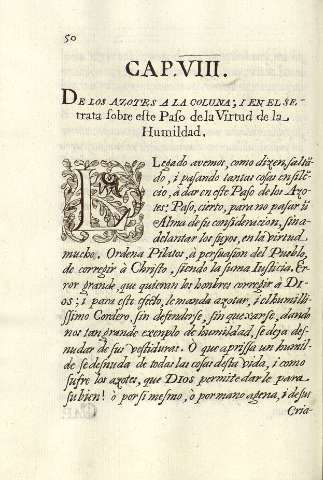 50
CAP.VIII.
DE LOS AZOTES A LA COLUNA; I EN EL SE-
trata sobre este Paso de la Virtud de la
Humildad.
LLegado avemos, como dizen, saltãdo,
i pasando tantas cosas en silẽcio,
à dar en este Paso de los Azotes;
Paso, cierto, para no pasar ũ
Alma de su consideracion, sin adelantar
los suyos, en la virtud
mucho, Ordena Pilatos, à persuasion del Pueblo,
de corregir à Christo, siendo la suma Iusticia. Er-
ror grande, que quieran los hombres corregir à DI-
os; i para este efeto, le manda azotar, i el humili-
ssimo Cordero, sin defenderse, sin quexarse, dando
nos tan grande exemplo de humildad, se deja des-
nudar de sus vestiduras. O que aprissa un humil-
de se desnuda de todas las cosas desta vida, i como
sufre los azotes, que DIOS permite darle para
su bien! ò por si mesmo, ò por mano agena, i de sus
Cria-